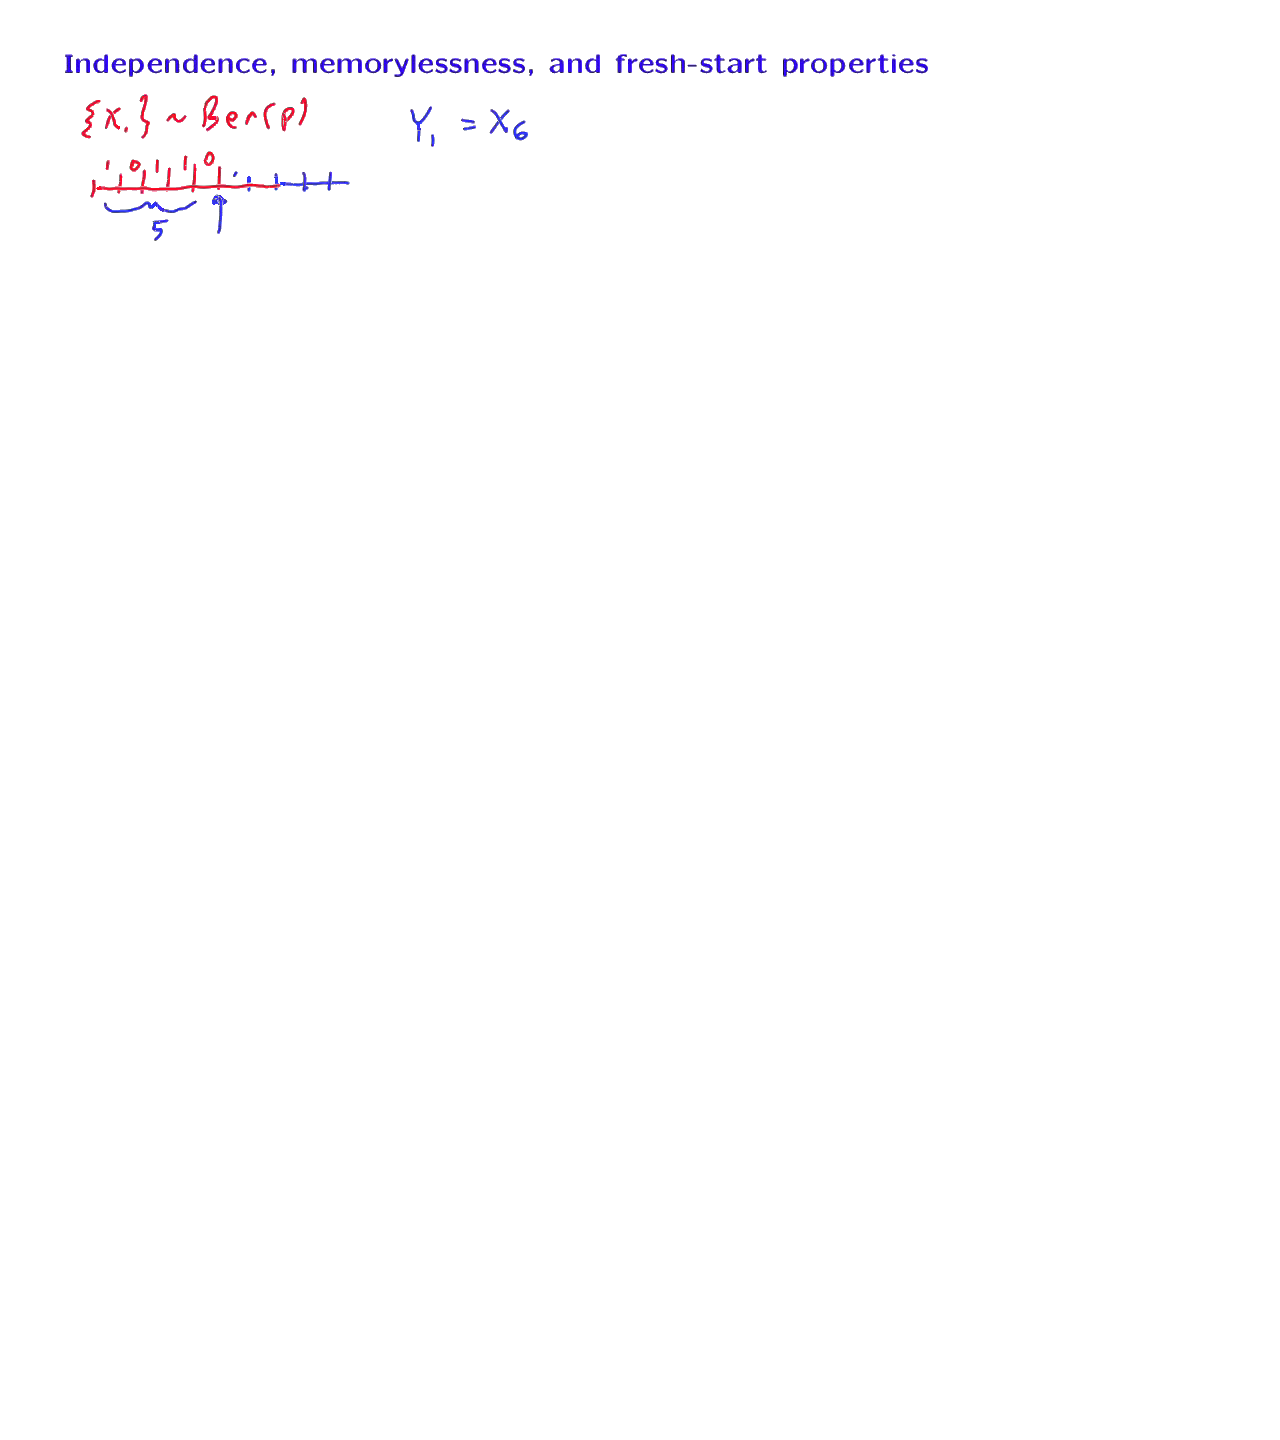 Independence, memorylessness, and fresh-start properties
{X.} ~ Ber(p) Y₁ = X₆
1 0 1 1 0
5